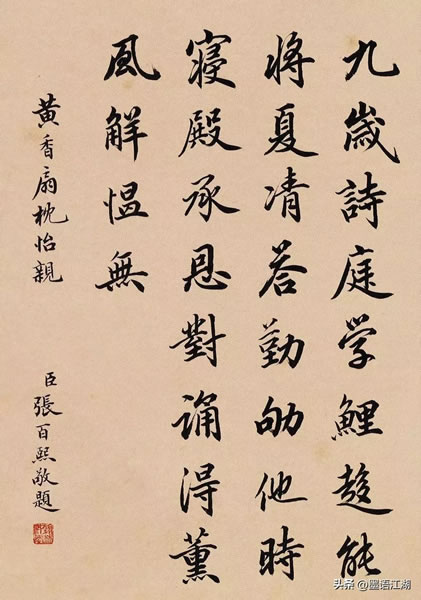 九歲詩庭学鯉趍能
将夏凊答勤劬他時
寢殿承恩對誦得薰
風解愠無
黄香扇枕怡親
臣張百熙敬題
头条 @墨语江湖